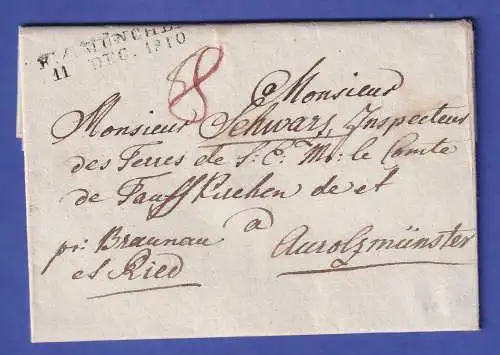 R. 4. MÜNCHEN
11 DEC. 1810
8
a Monsieur
Monsieur Schwarz, Inspecteur
des Terres de S: E: Mr: le Comte
de Tauffkirchen de et
a
pr: Braunau
et Ried
Aurolzmünster